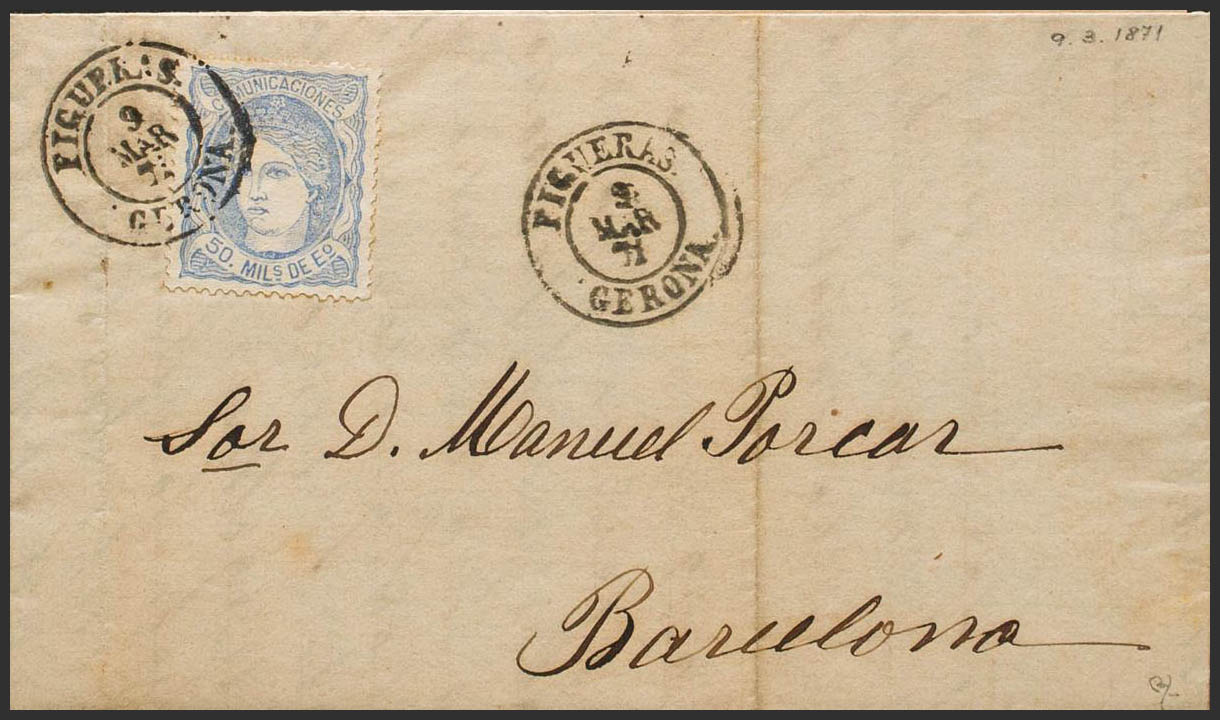 9. 3. 1871
FIGUERAS.
9
MAR
71
GERONA.
COMUNICACIONES
50. MILS DE Eo
FIGUERAS.
9
MAR
71
GERONA.
Sor D. Manuel Porcar
Barcelona